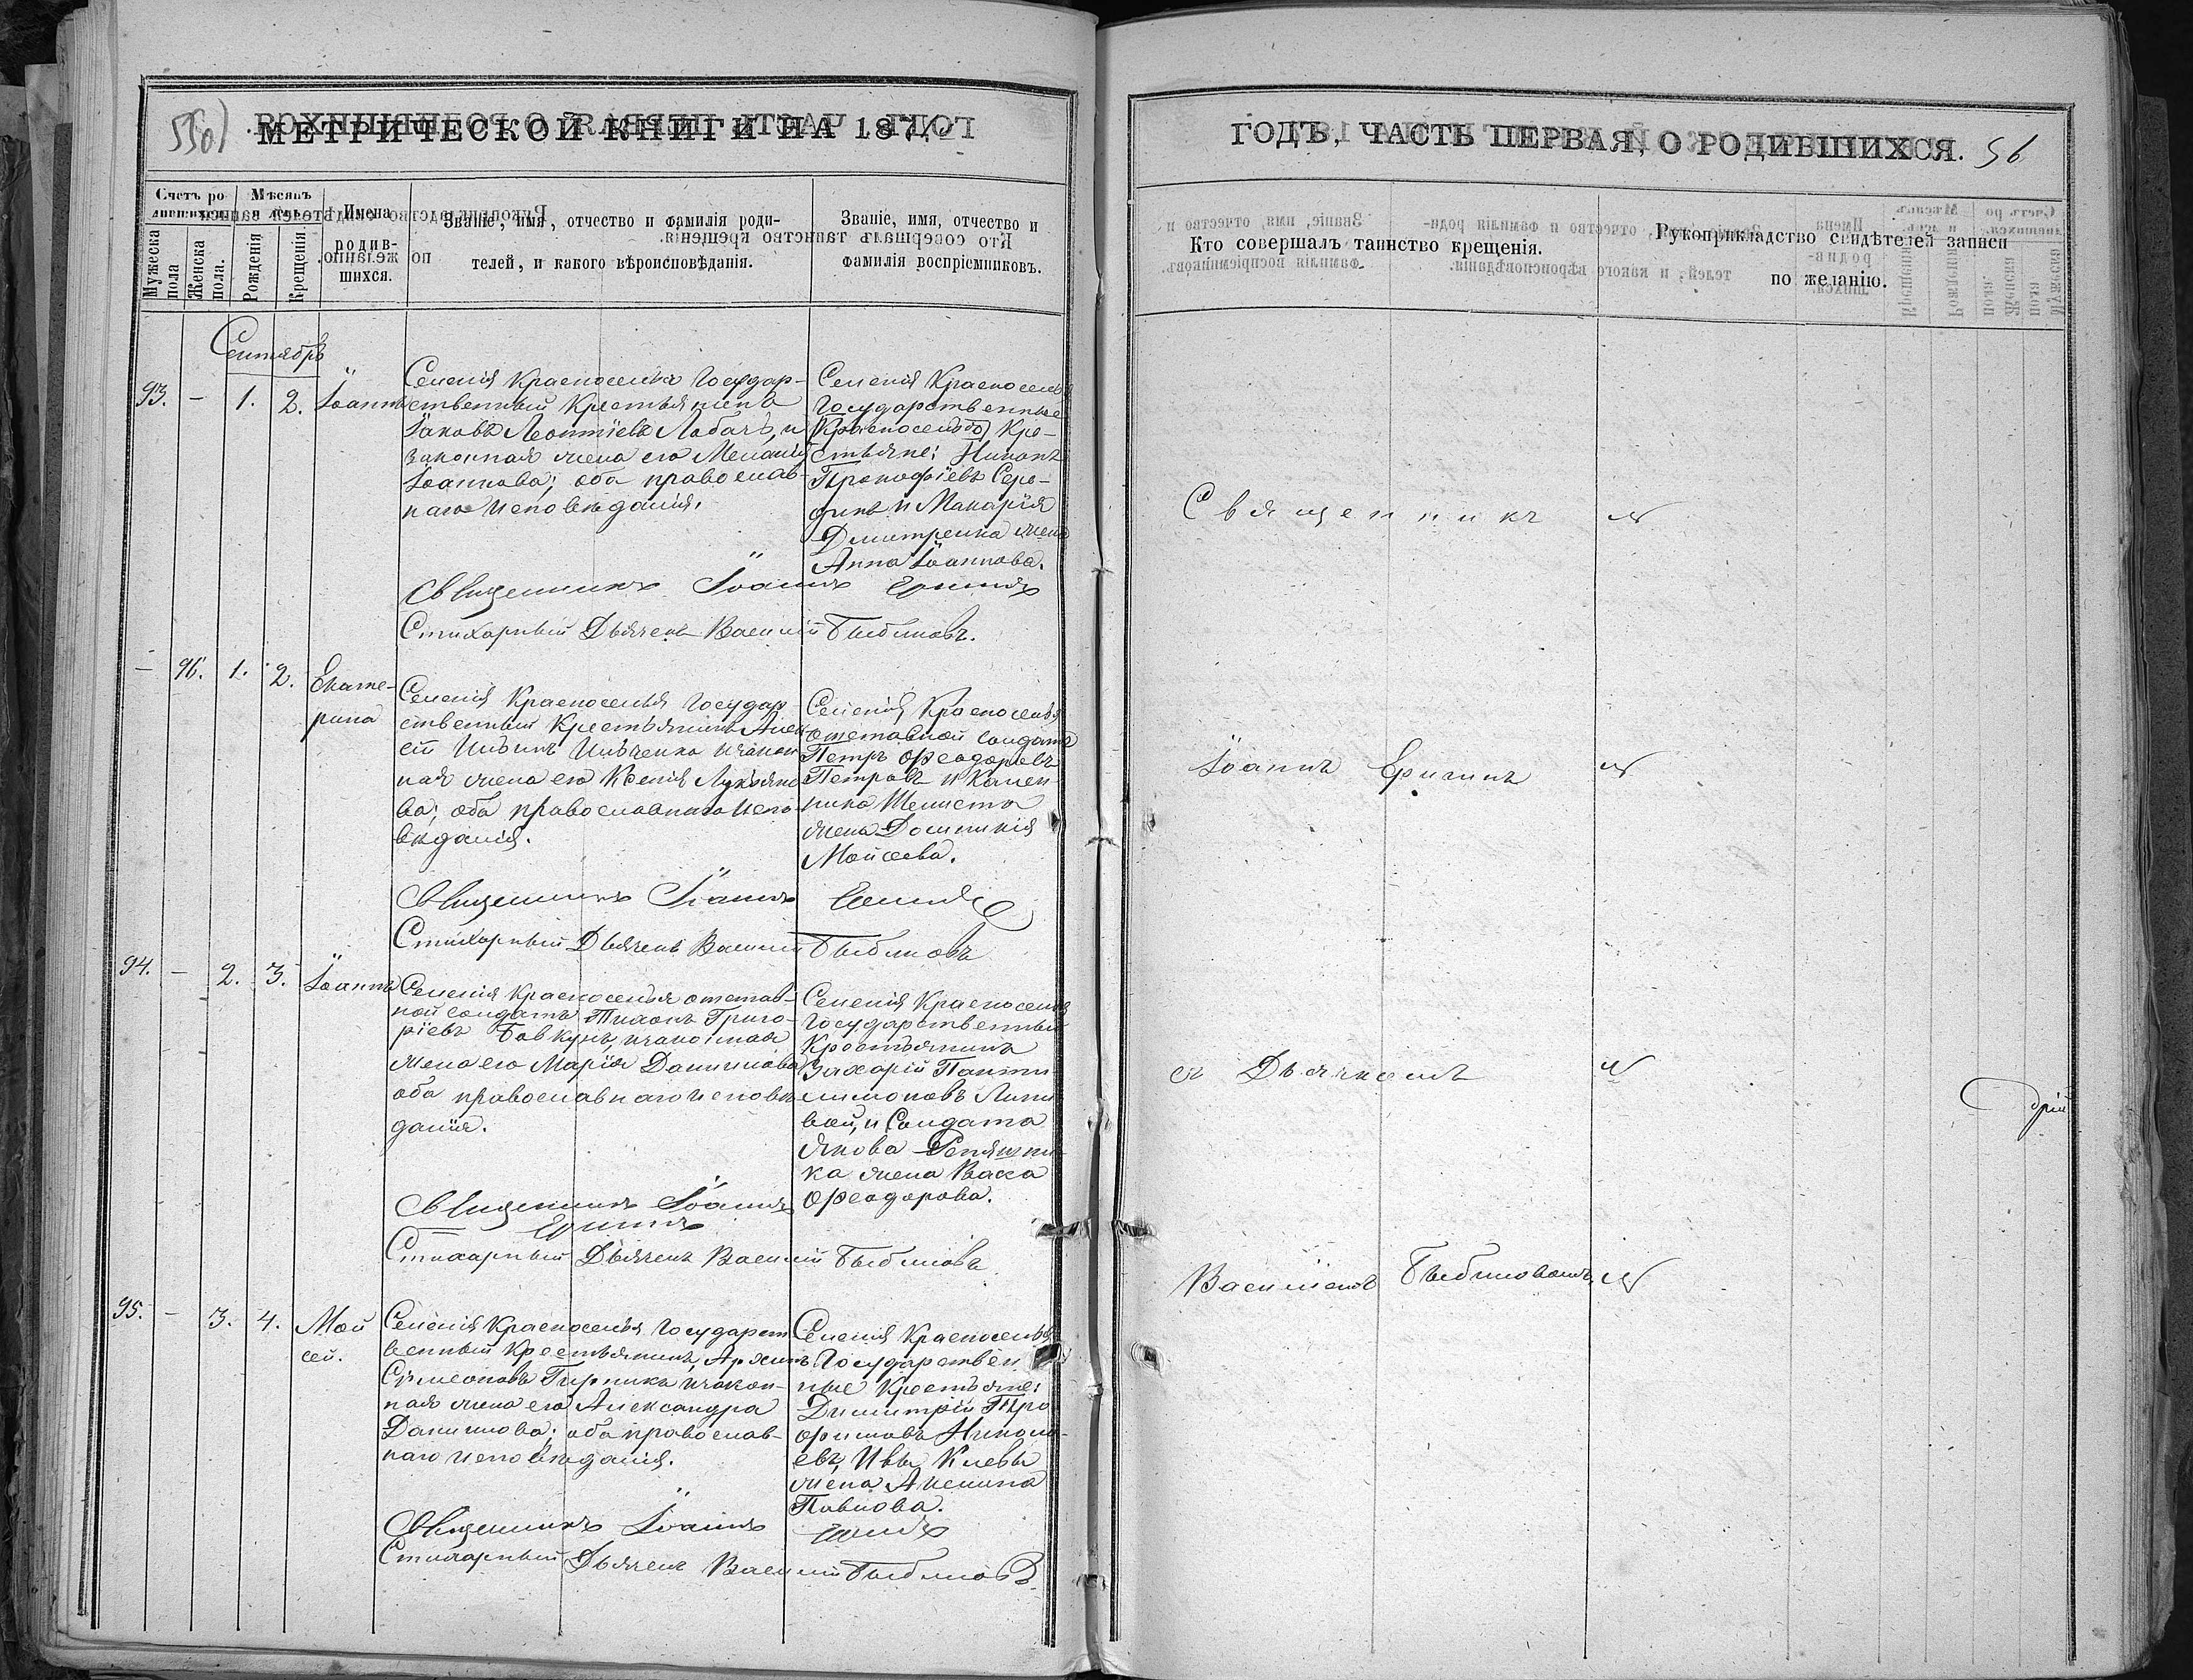 МЕТРИЧЕСКОЙ КНИГИ НА 187
Счетъ ро
дившихся.
Мѣсяцъ
и день.
Имена
родив-
шихся.
Званіе, имя, отчество и фамилія роди-
телей, и какого вѣроисповѣданія.
Званіе, имя, отчество и
фамилія воспріемниковъ.
Мужеска
пола
Женска
пола.
Рожденія
Крещенія.
Сентябрь
93. - 1. 2. Іоаннъ
Селенія Красноселья Государ-
ственный Крестьянинъ
Іаковъ Леонтіевъ Лобачъ, и
законная жена его Меланія
Іоаннова; оба православ-
наго исповѣданія.
Селенія Красноселья
Государственные
Кре-
стьяне: Никонъ
Прокофіевъ Сере-
динъ и Макарія
Дмитренка жена
Анна Іоаннова.
Священникъ Іоаннъ
Стихарный Дьячекъ Василій
— 96. 1. 2. Екате-
рина
Селенія Красноселья Государ-
ственный Крестьянинъ Алек
сѣй Ильинъ Ильченко и закон
ная жена его Ксенія Лукьяно
ва; оба православнаго испо-
вѣданія.
Селенія Красноселья
отставной солдатъ
Петръ Ѳеодоровъ
Петровъ и
жена Домникія
Мойсеева.
Священникъ Іоаннъ
Стихарный Дьячекъ Василій
94. — 2. 3. Іоаннъ
Селенія Красноселья отстав-
ной солдатъ Тихонъ Григо-
ріевъ Бовкунъ, и законная
жена его Марія Даниилова
оба православнаго исповѣ-
данія.
Селенія Красноселья
Государственный
Крестьянинъ
Захарій Панти-
лимоновъ
вой, и Солдата
Якова
ка жена Васса
Ѳеодорова.
Священникъ Іоаннъ
Стихарный Дьячекъ Василій
95. — 3. 4. Мой
сей.
Селенія Красноселья Государст
венный Крестьянинъ, Архипъ
Сѵмеоновъ Гирника и закон-
ная жена его Александра
Даниилова; оба православ-
наго исповѣданія.
Селенія Красноселья
Государствен
ные Крестьяне:
Димитрій Тро
фимовъ Никола-
евъ, Ивы
жена Акилина
Павлова.
Священникъ Іоаннъ
Стихарный Дьячекъ Василій
ГОДЪ, ЧАСТЬ ПЕРВАЯ, О РОДИВШИХСЯ. 56
Кто совершалъ таинство крещенія.
Рукоприкладство свидѣтелей записи
по желанію.
Священникъ и
Іоаннъ
съ Дьячкомъ
Василіемъ